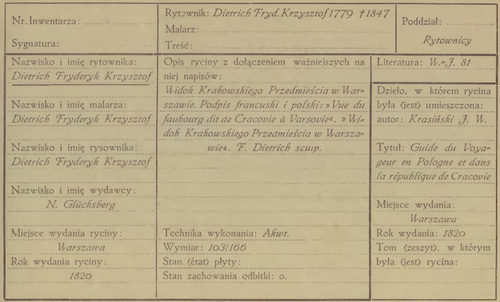 Nr. Inwentarza:
Sygnatura:
Rytownik: Dietrich Fryd. Krzysztof 1779 † 1847
Malarz:
Treść:
Poddział:
Rytownicy
Nazwisko i imię rytownika:
Dietrich Fryderyk Krzysztof
Nazwisko i imię malarza:
Dietrich Fryderyk Krzysztof
Nazwisko i imię rysownika:
Dietrich Fryderyk Krzysztof
Nazwisko i imię wydawcy:
N. Glücksberg
Miejsce wydania ryciny:
Warszawa
Rok wydania ryciny:
1820
Opis ryciny z dołączeniem ważniejszych na
niej napisów:
Widok Krakowskiego Przedmieścia w War-
szawie. Podpis francuski i polski: »Vue du
faubourg dit de Cracovie à Varsovie«. »Wi-
dok Krakowskiego Przedmieścia w Warsza-
wie«. F. Dietrich sculp.
Technika wykonania: Akwt.
Wymiar: 103/166
Stan (état) płyty:
Stan zachowania odbitki: o.
Literatura: W.-J. 81
Dzieło, w którem rycina
była (jest) umieszczona:
autor: Krasiński J. W.
Tytuł: Guide du Voya-
geur en Pologne et dans
la république de Cracovie
Miejsce wydania:
Warszawa
Rok wydania: 1820
Tom (zeszyt), w którym
była (jest) rycina: